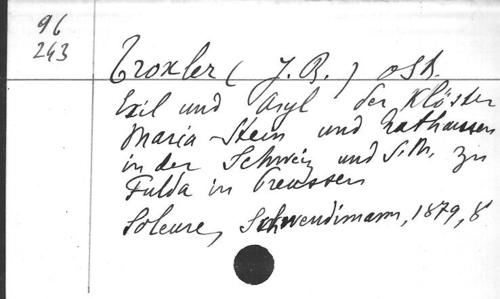 96
243
Troxler (J. B.) OSB.
Exil und Asyl der Klöster
Maria-Stein und Rathausen
in der Schweiz und S. M. zu
Fulda in Preussen
Soleure, Schwendimann, 1879, 8°